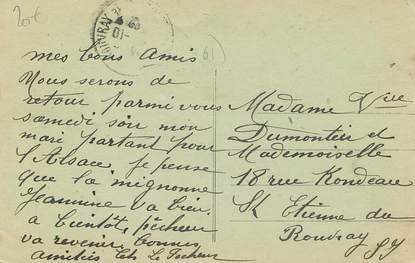 20€
mes bons amis
Nous serons de
retour parmi vous
samedi soir mon
mari partant pour
l'Alsace, je pense
que la mignonne
Jeannine va bien.
a bientôt, pêcheur
va revenir bonnes
amitiés
Madame Vve
Dumontier et
Mademoiselle
18 rue
St Etienne du
Rouvray